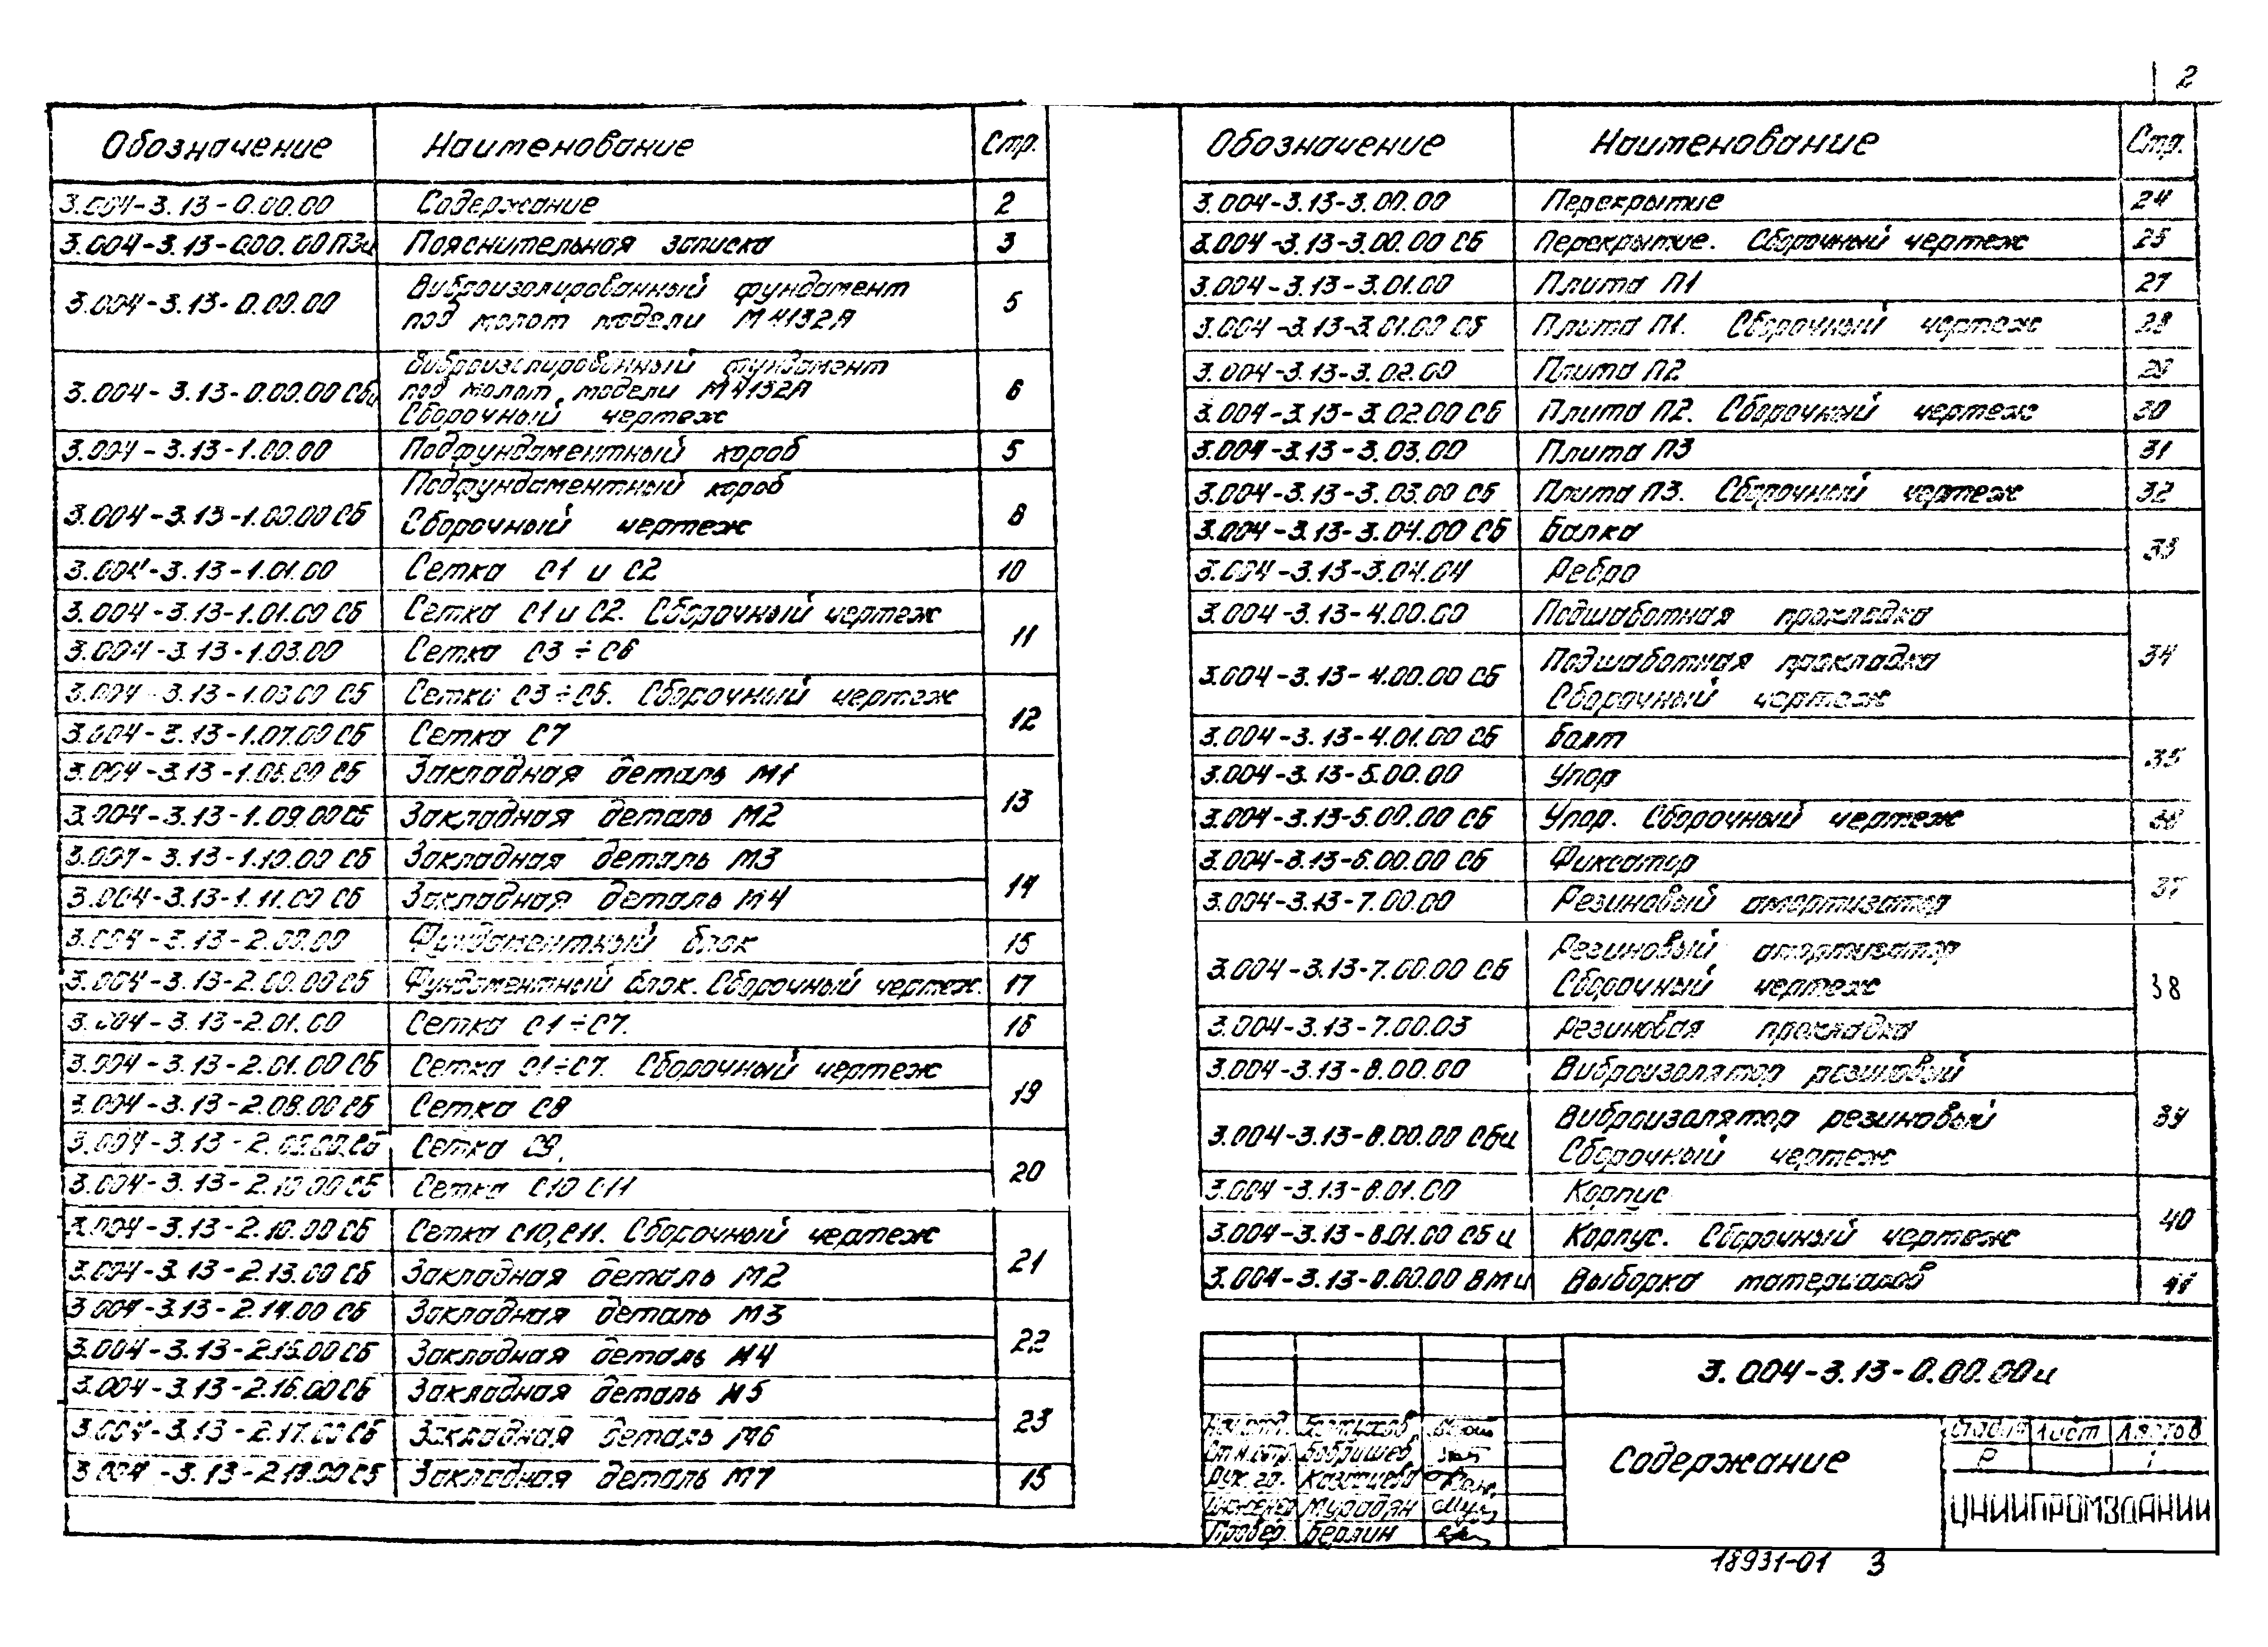 2
Обозначение Наименование Стр.
3.004-3.13-0.00.00 Содержание 2
3.004-3.13-0.00.00ПЗи Пояснительная записка 3
3.004-3.13-0.00.00 Виброизолированный фундамент
под молот модели М4132А 5
3.004-3.13-0.00.00 Сби Виброизолированный фундамент
под молот модели М4132А
Сборочный чертеж 6
3.004-3.13-1.00.00 Подфундаментный короб 5
3.004-3.13-1.00.00 Сб Подфундаментный короб
Сборочный чертеж 8
3.004-3.13-1.01.00 Сетка С1 и С2 10
3.004-3.13-1.01.00 Сб Сетка С1 и С2. Сборочный чертеж 11
3.004-3.13-1.03.00 Сетка С3÷С6
3.004-3.13-1.03.00 Сб Сетка С3÷С6. Сборочный чертеж 12
3.004-3.13-1.07.00 Сб Сетка С7
3.004-3.13-1.08.00 Сб Закладная деталь М1 13
3.004-3.13-1.09.00 Сб Закладная деталь М2
3.004-3.13-1.10.00 Сб Закладная деталь М3 14
3.004-3.13-1.11.00 Сб Закладная деталь М4
3.004-3.13-2.00.00 Фундаментный блок 15
3.004-3.13-2.00.00 Сб Фундаментный блок. Сборочный чертеж. 17
3.004-3.13-2.01.00 Сетка С1÷С7. 16
3.004-3.13-2.01.00 Сб Сетка С1÷С7. Сборочный чертеж 19
3.004-3.13-2.08.00 Сб Сетка С8
3.004-3.13-2.09.00 Сб Сетка С9. 20
3.004-3.13-2.10.00 Сб Сетка С10 С11
3.004-3.13-2.10.00 Сб Сетка С10, С11. Сборочный чертеж 21
3.004-3.13-2.13.00 Сб Закладная деталь М2
3.004-3.13-2.14.00 Сб Закладная деталь М3 22
3.004-3.13-2.15.00 Сб Закладная деталь М4
3.004-3.13-2.16.00 Сб Закладная деталь М5 23
3.004-3.13-2.17.00 Сб Закладная деталь М6
3.004-3.13-2.18.00 Сб Закладная деталь М7 15
Обозначение Наименование Стр.
3.004-3.13-3.00.00 Перекрытие 24
3.004-3.13-3.00.00 Сб Перекрытие. Сборочный чертеж 25
3.004-3.13-3.01.00 Плита П1 27
3.004-3.13-3.01.00 Сб Плита П1. Сборочный чертеж 28
3.004-3.13-3.02.00 Плита П2 29
3.004-3.13-3.02.00 Сб Плита П2. Сборочный чертеж 30
3.004-3.13-3.03.00 Плита П3 31
3.004-3.13-3.03.00 Сб Плита П3. Сборочный чертеж 32
3.004-3.13-3.04.00 Сб Балка 33
3.004-3.13-3.04.04 Ребро
3.004-3.13-4.00.00 Подшаботная прокладка 34
3.004-3.13-4.00.00 Сб Подшаботная прокладка
Сборочный чертеж
3.004-3.13-4.01.00 Сб Болт 35
3.004-3.13-5.00.00 Упор
3.004-3.13-5.00.00 Сб Упор. Сборочный чертеж 36
3.004-3.13-6.00.00 Сб Фиксатор 37
3.004-3.13-7.00.00 Резиновый амортизатор
3.004-3.13-7.00.00 Сб Резиновый амортизатор
Сборочный чертеж 38
3.004-3.13-7.00.03 Резиновая прокладка
3.004-3.13-8.00.00 Виброизолятор резиновый 39
3.004-3.13-8.00.00 Сби Виброизолятор резиновый
Сборочный чертеж
3.004-3.13-8.01.00 Корпус 40
3.004-3.13-8.01.00 Сб и Корпус. Сборочный чертеж
3.004-3.13-0.00.00 ВМи Выборка материалов 41
3.004-3.13-0.00.00и
Содержание
Стадия Лист Листов
Р 1
ЦНИИПРОМЗДАНИЙ
Нач.отд.
Гл.констр. Бобришев
Рук. гр. Казачева
Инженер Мурадян
Провер. Берлин
18931-01 3